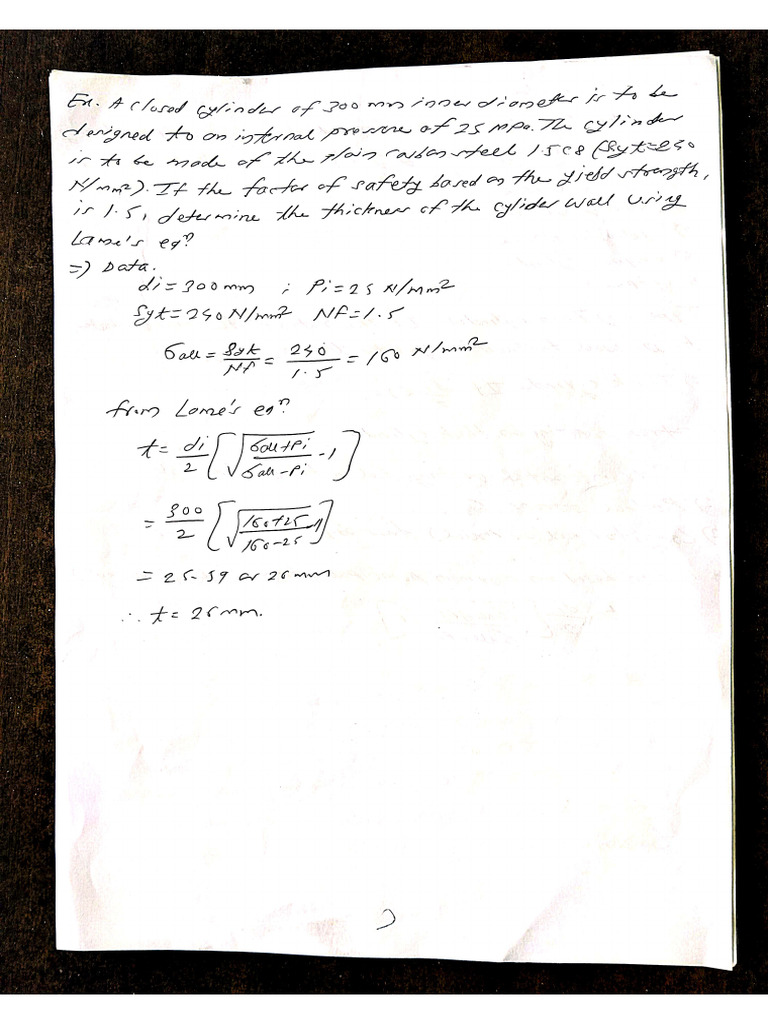 Ex. A closed cylinder of 300 mm inner diameter is to be
designed to an internal pressure of 25 MPa. The cylinder
is to be made of the plain carbon steel 15C8 (Syt=240
N/mm²). If the factor of safety based on the yield strength,
is 1.5, determine the thickness of the cylider wall using
Lame's eqⁿ?
=> Data.
di = 300 mm ; Pi = 25 N/mm²
Syt = 240 N/mm² Nf = 1.5
σall = Syt/Nf = 240/1.5 = 160 N/mm²
from Lame's eqⁿ.
t = di/2 [√((σall+Pi)/(σall-Pi)) -1]
= 300/2 [√((160+25)/(160-25)) -1]
= 25.59 or 26 mm
∴ t = 26 mm.